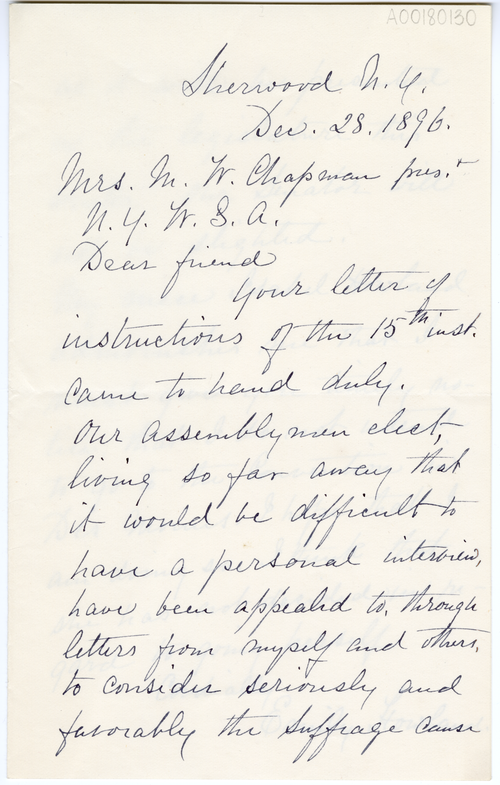 A00180130
Sherwood N.Y.
Dec. 28. 1896.
Mrs. M. W. Chapman pres.t
N. Y. W. S. A.
Dear friend
Your letter of
instructions of the 15th inst.
came to hand duly.
Our Assemblymen elect,
living so far away that
it would be difficult to
have a personal interview,
have been appealed to, through
letters from myself and others,
to consider seriously and
favorably the Suffrage Cause